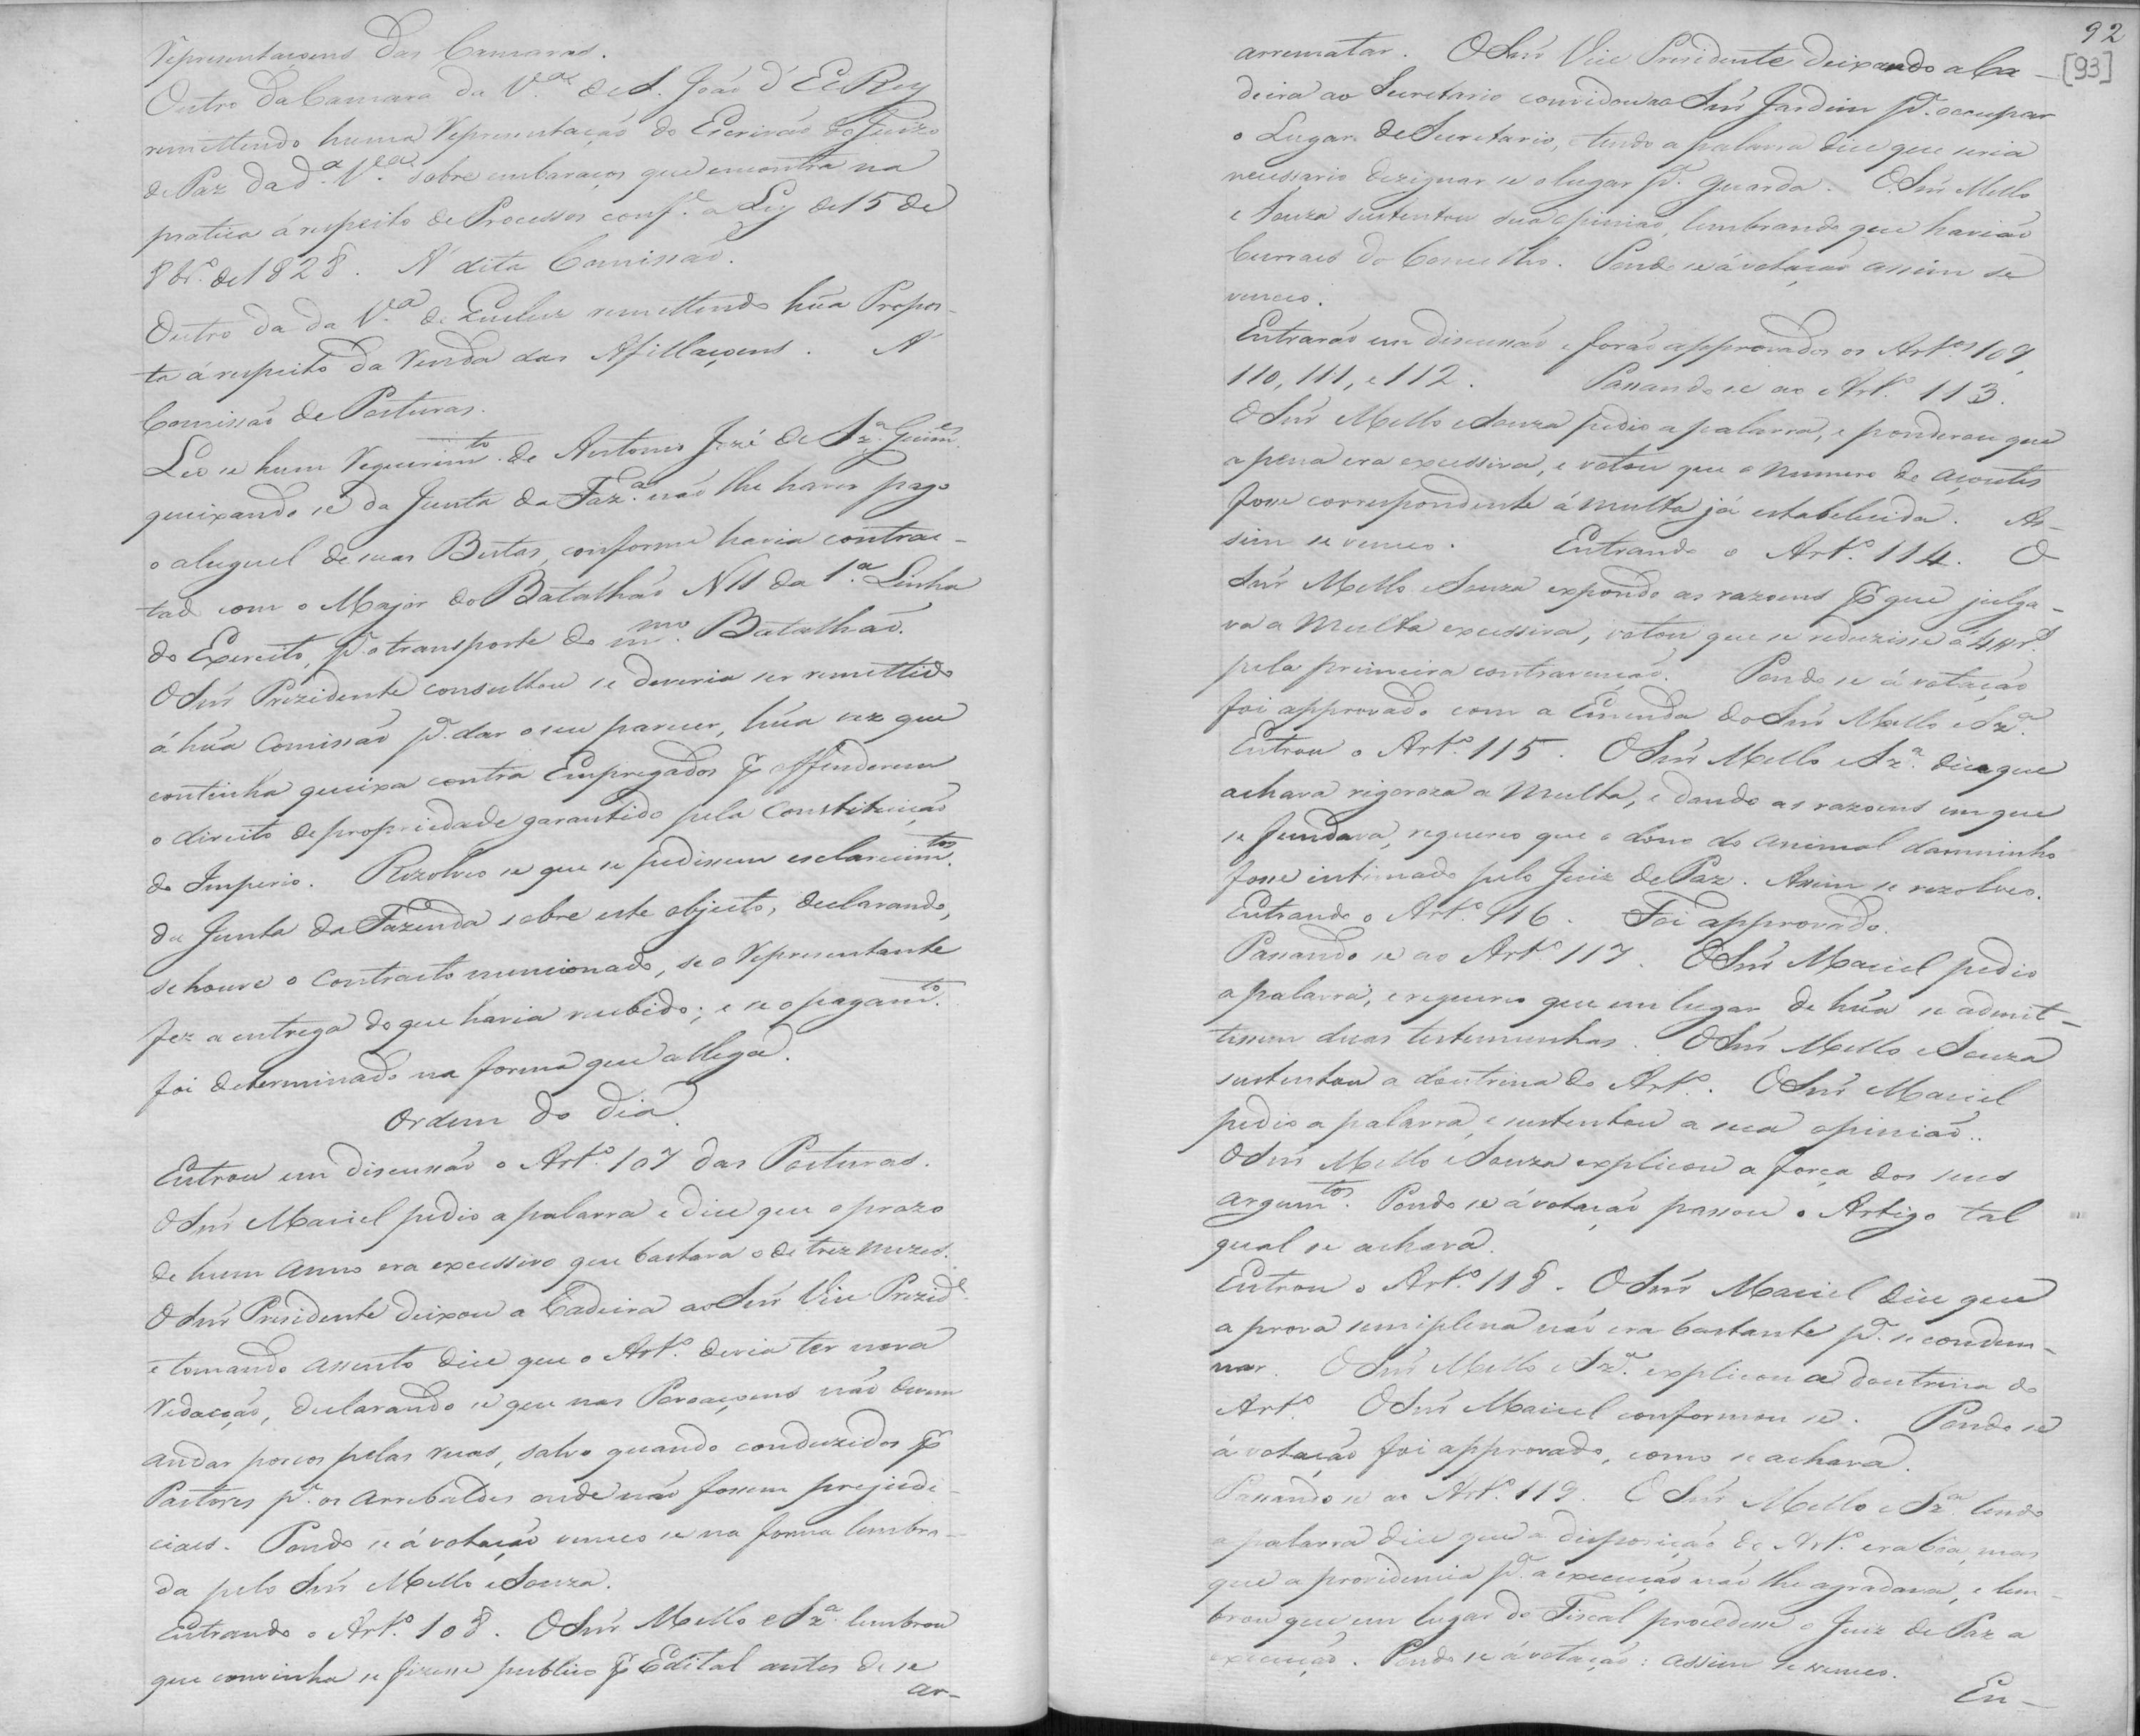 Representaçoens das Camaras.
Outro da Camara da V.ª de S. João d'El Rey
remettendo huma Representação do Escrivão do Juizo
de Paz da d.ª V.ª sobre embaraços que encontra na
pratica á respeito de Processos conf.e a Ley de 15 de
8br.º de 1828. A' dita Comissão.
Outro da da V.ª de Queluz remettendo hũa Propos-
ta á respeito da Renda das Afillaçoens. A'
Comissão de Posturas.
Leo se hum Requerim.to de Antonio Jozé de Sz.ª Guim.es
queixando se da Junta da Faz.ª não lhe haver pago
o aluguel de suas Bestas, conforme havia contrac-
tado com o Major do Batalhão N 11 da 1.ª Linha
do Exercito, p.ª o transporte do m.mo Batalhão.
O Snr̃ Prezidente consultou se deveria ser remettido
á hũa Comissão p.ª dar o seu parecer, hũa vez que
continha queixa contra Empregados p̃ offenderem
o direito de propriedade garantido pela Constituição
do Imperio. Rezolveo se que se pedissem esclarecim.tos
da Junta da Fazenda sobre este objecto, declarando,
se houve o Contracto mencionado, se o Representante
fez a entrega do que havia recebido; e se o pagam.to
foi determinado na forma que allega.
Ordem do dia.
Entrou em discussão o Art.º 107 das Posturas.
O Snr̃ Maciel pedio a palavra e dice que o prazo
de hum anno era excessivo que bastava o de trez mezes.
O Snr̃ Presidente deixou a Cadeira ao Snr̃ Vice Prezid.e
e tomando assento dice que o Art.º devia ter nova
Redacção, declarando se que nas Povoaçoens não devem
andar porcos pelas ruas, salvo quando conduzidos p̃
Pastores p.ª os arrebaldes onde não fossem prejudi-
ciaes. Pondo se á votação venceo se na forma lembra-
da pelo Snr̃ Mello e Souza.
Entrando o Art.º 108. O Snr̃ Mello e Sz.ª lembrou
que convinha se fizesse publico p̃ Edital antes de se
ar-
92
[93]
arrematar. O Snr̃ Vice Presidente deixando a Ca-
deira ao Secretario convidou ao Snr̃ Jardim p.ª occupar
o Lugar de Secretario, e tendo a palavra dice que seria
necessario dezignar se o lugar p.ª guarda. O Snr̃ Mello
e Souza sustentou sua opinião, lembrando que havião
Curraes do Concelho. Pondo se á votação assim se
venceo.
Entrarão em discussão e forão approvados os Art.os 109,
110, 111, e 112. Passando se ao Art.º 113.
O Snr̃ Mello e Souza pedio a palavra, e ponderou que
a pena era excessiva, e votou que o numero de açoutes
fosse correspondente á multa já estabelecida. As-
sim se venceo. Entrando o Art.º 114. O
Snr̃ Mello e Souza expondo as razoens p̃ que julga-
va a Multa excessiva, votou que se reduzisse á 4$ r.s
pela primeira contravenção. Pondo se á votação
foi approvado com a Emenda do Snr̃ Mello e Sz.ª
Entrou o Art.º 115. O Snr̃ Mello e Sz.ª dice que
achava rigoroza a Multa, e dando as razoens em que
se fundava, requereo que o dono do animal damninho
fosse intimado pelo Juiz de Paz. Assim se rezolveo.
Entrando o Art.º 116. Foi approvado.
Passando se ao Art.º 117. O Snr̃ Maciel pedio
a palavra, e requereo que em lugar de hũa se admit-
tissem duas testemunhas. O Snr̃ Mello e Souza
sustentou a doutrina do Art.º. O Snr̃ Maciel
pedio a palavra, e sustentou a sua opinião.
O Snr̃ Mello e Souza explicou a força dos seus
argum.tos. Pondo se á votação passou o Artigo tal
qual se achava.
Entrou o Art.º 118. O Snr̃ Maciel dice que
a prova semiplena não era bastante p.ª se condem-
nar. O Snr̃ Mello e Sz.ª explicou a doutrina do
Art.º O Snr̃ Maciel conformou se. Pondo se
á votação foi approvado, como se achava.
Passando se ao Art.º 119. O Snr̃ Mello e Sz.ª tendo
a palavra dice que a disposição do Art.º era boa, mas
que a providencia p.ª a execução não lhe agradava, e lem-
brou que em lugar do Fiscal procedesse o Juiz de Paz a
execução. Pondo se á votação: assim se venceo.
En-